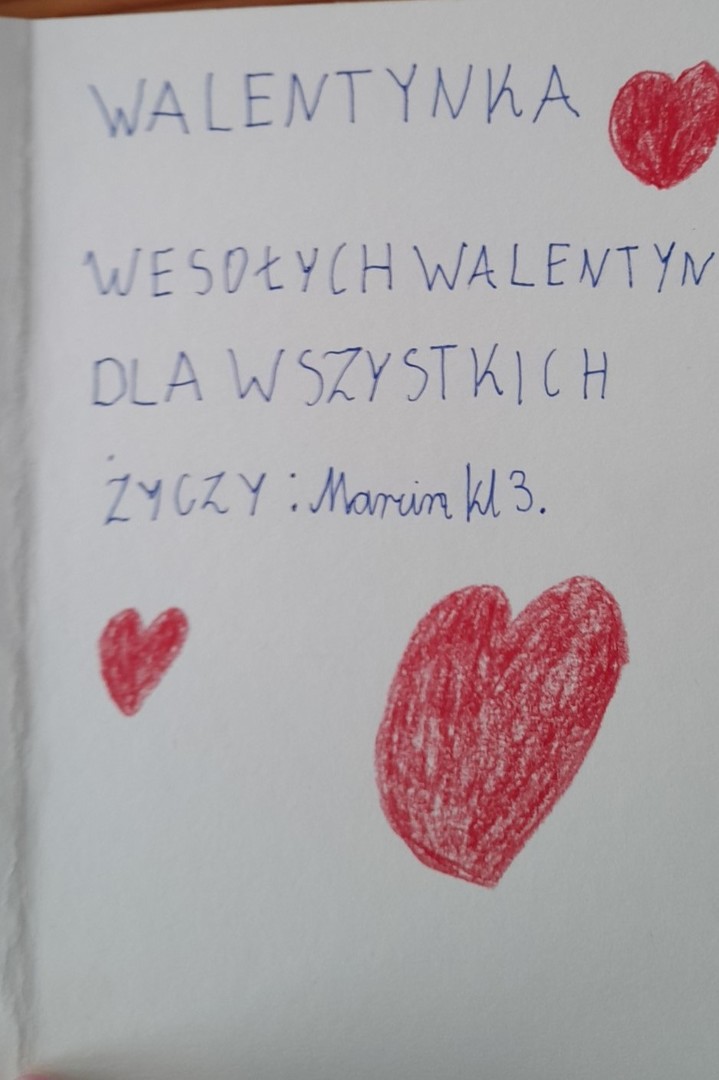 WALENTYNKA
WESOŁYCH WALENTYN
DLA WSZYSTKICH
ŻYCZY : Marcin kl 3.